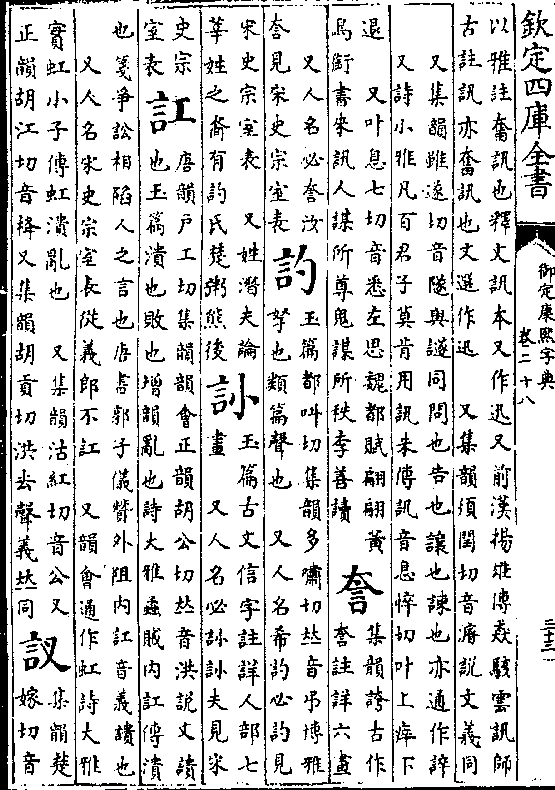 欽定四庫全書
御定康熙字典
卷二十八
三十三
以雅註奮訊也釋文訊本又作迅又前漢揚雄傳猋駭雲訊師
古註訊亦奮訊也文選作迅　又集韻須閏切音濬説文義同
又集韻雖遂切音隧與誶同問也告也讓也諫也亦通作誶
又詩小雅凡百君子莫肯用訊朱傳訊音息悴切叶上瘁下
退　又叶息七切音悉左思魏都賦翩翩黄
鳥銜書來訊人謀所尊鬼謀所秩李善讀
集韻誇古作
註詳六畫
又人名必汝
見宋史宗室表
訋
玉篇都叫切集韻多嘯切𠀤音弔博雅
挐也類篇聲也　又人名希訋必訋見
宋史宗室表　又姓潛夫論
芈姓之裔有訋氏楚鬻熊後
玉篇古文信字註詳人部七
畫　又人名必夫見宋
史宗
室表
訌
唐韻戶工切集韻韻會正韻胡公切𠀤音洪説文讃
也玉篇潰也敗也增韻亂也詩大雅蟊賊内訌傳潰
也箋爭訟相陷人之言也唐書郭子儀贊外阻内訌音義讃也
又人名宋史宗室長從義郎不訌　又韻會通作虹詩大雅
實虹小子傳虹潰亂也　又集韻沽紅切音公又
正韻胡江切音栙又集韻胡貢切洪去聲義𠀤同
訍
集韻楚
嫁切音